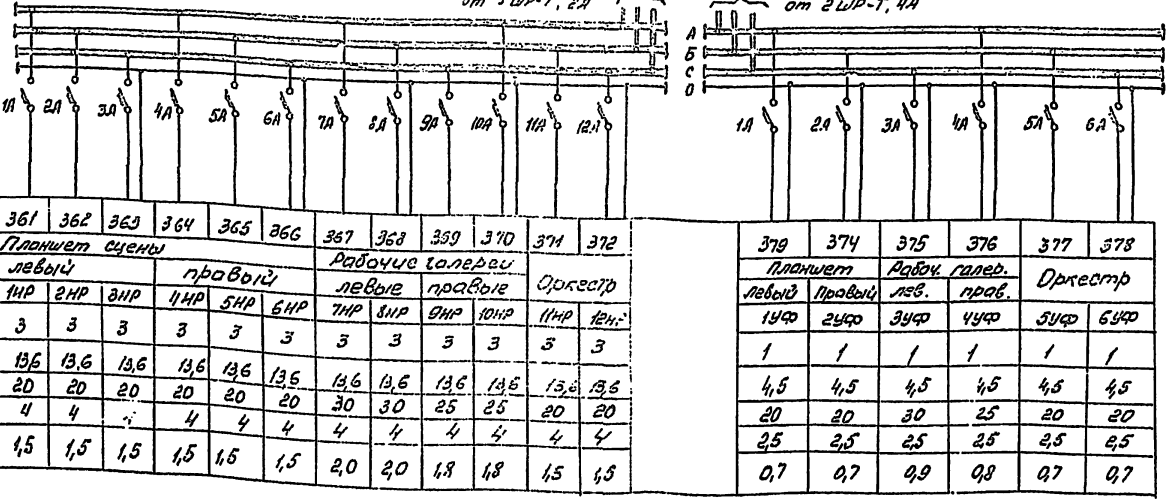 от 2ШР-Т, 4А
А
Б
С
0
1А 2А 3А 4А 5А 6А 7А 8А 9А 10А 11А 12А
1А 2А 3А 4А 5А 6А
361 362 363 364 365 366 367 368 369 370 371 372
Планшет сцены Рабочие галереи Оркестр
левый правый левые правые
1НР 2НР 3НР 4НР 5НР 6НР 7НР 8НР 9НР 10НР 11НР 12НР
3 3 3 3 3 3 3 3 3 3 3 3
13,6 13,6 13,6 13,6 13,6 13,6 13,6 13,6 13,6 13,6 13,6 13,6
20 20 20 20 20 20 30 30 25 25 20 20
4 4 4 4 4 4 4 4 4 4 4
1,5 1,5 1,5 1,5 1,5 1,5 2,0 2,0 1,8 1,8 1,5 1,5
379 374 375 376 377 378
Планшет Рабоч. галер. Оркестр
Левый Правый лев. прав.
1УФ 2УФ 3УФ 4УФ 5УФ 6УФ
1 1 1 1 1 1
4,5 4,5 4,5 4,5 4,5 4,5
20 20 30 25 20 20
2,5 2,5 2,5 2,5 2,5 2,5
0,7 0,7 0,9 0,8 0,7 0,7